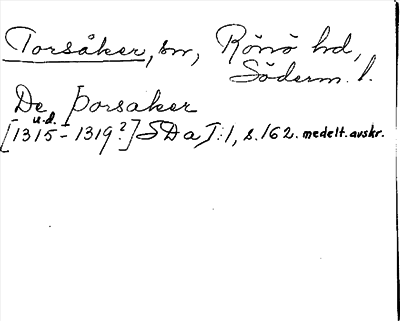 Torsåker, sn, Rönö hd,
Söderm. l.
De þorsaker
u.d.
[1315-1319?] SD a I:1, s. 162. medelt. avskr.